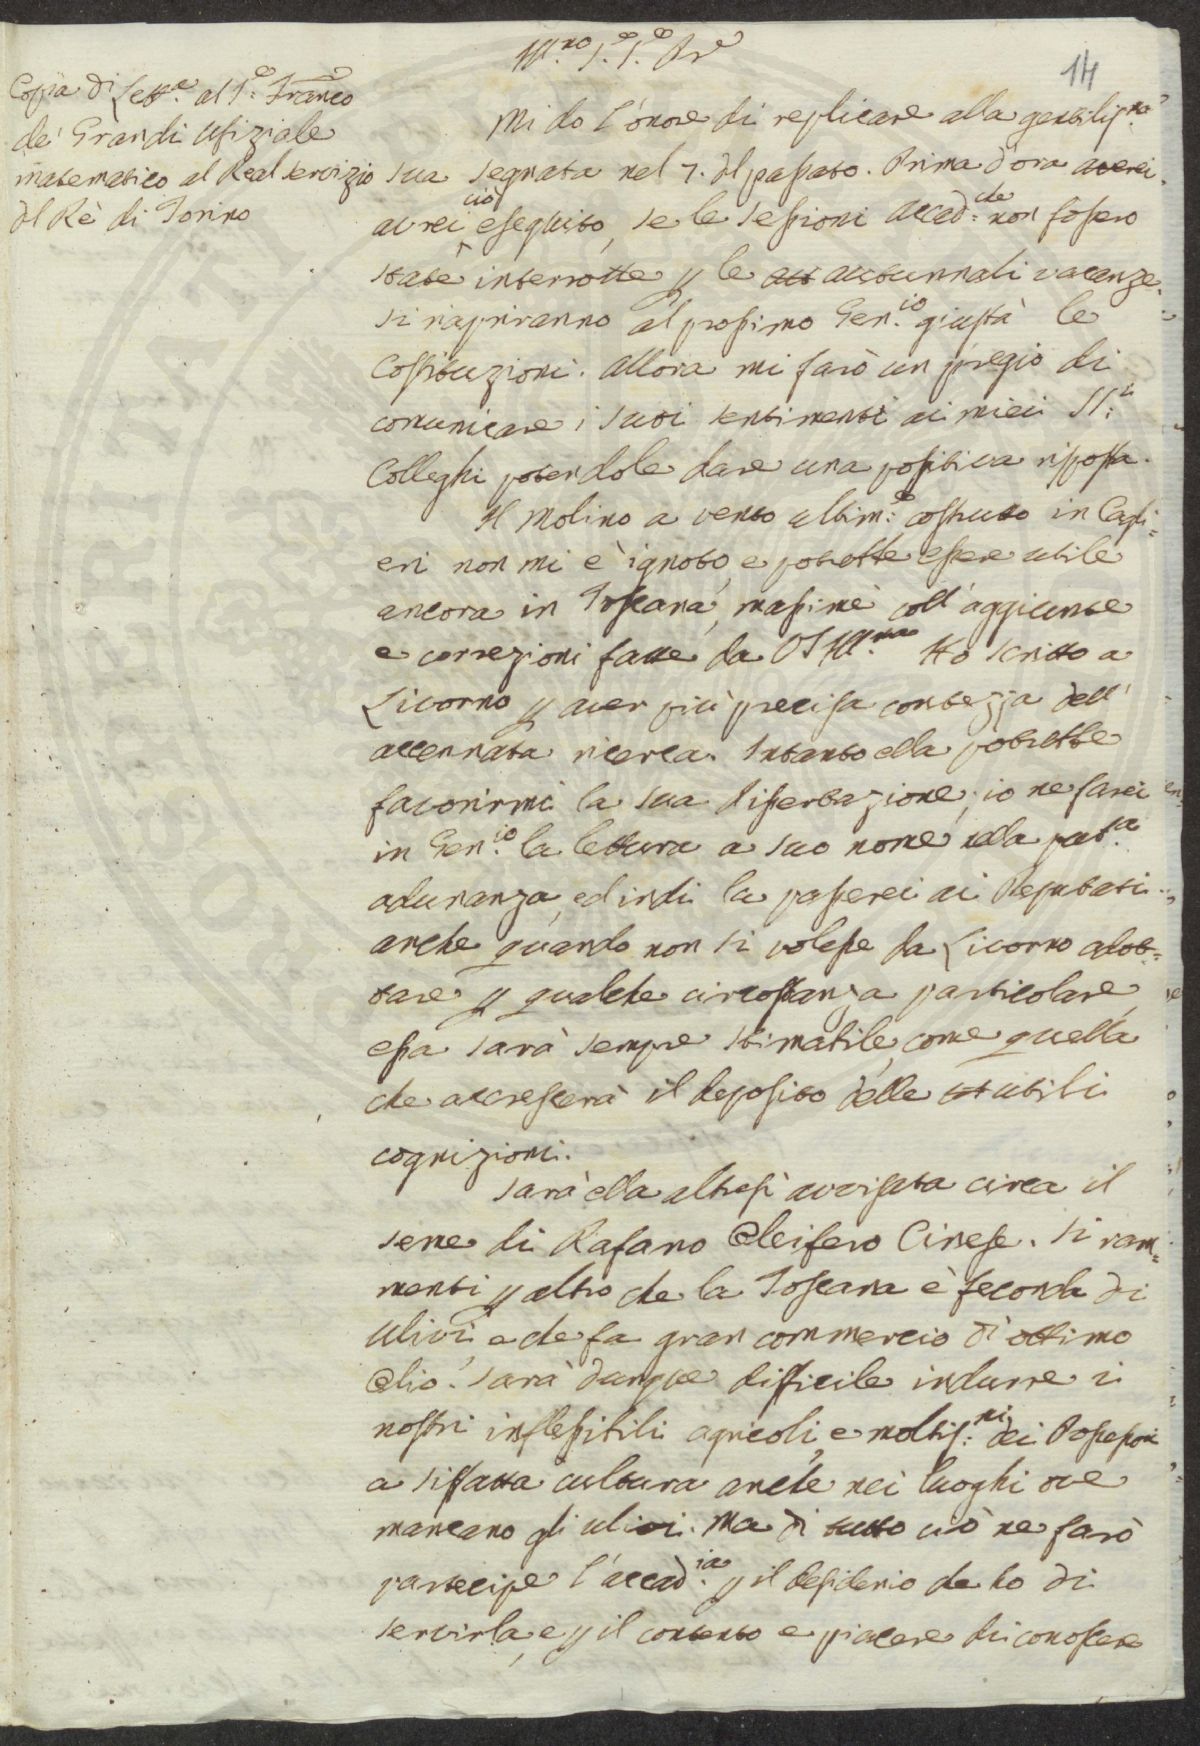 Ill.mo S.e S.e Pre
14
Copia di Lett.a al S.e Franco
de' Grandi Ufiziale
matematico al Real servizio
del Rè di Torino
Mi do l'onore di replicare alla gentilis.ma
sua segnata nel 7. del passato. Prima d'ora averei
avrei ciò eseguito, se le sessioni accad.che non fossero
state interrotte p le aut autunnali vacanze.
Si riapriranno al prossimo Gen.io giusta le
Costituzioni. Allora mi farò un pregio di
comunicare i suoi sentimenti ai miei SS.ri
Colleghi potendole dare una positiva risposta.
Il Molino a vento ultim.e costruto in Cagli=
eri non mi è ignoto, e potrebbe essere utile
ancora in Toscana, massime coll'aggiunte
e correzioni fatte da VS Ill.ma Ho scritto a
Livorno p aver più precisa contezza dell'
accennata ricerca. Intanto ella potrebbe
favorirmi la sua dissertazione, io ne farei
in Gen.io la lettura a suo nome nella pub.ca
adunanza, ed indi la passerei ai Deputati
anche quando non si volesse da Livorno adot=
tare p qualche circostanza particolare
essa sarà sempre stimabile, come quella
che accrescerà il deposito delle ut utili
cognizioni.
Sarà ella altresì avvisata circa il
seme di Rafano Oleifero Cinese. Si ram=
menti p altro che la Toscana è feconda di
ulivi, e che fa gran commercio di ottimo
Olio. Sarà dunque difficile indurre i
nostri inflessibili agricoli, e moltis.mi dei Possessori
a siffatta cultura anche nei luoghi ove
mancano gli ulivi. Ma di tutto ciò ne farò
partecipe l'Accad.ia p il desiderio che ho di
servirla, e p il contento e piacere di conoscere